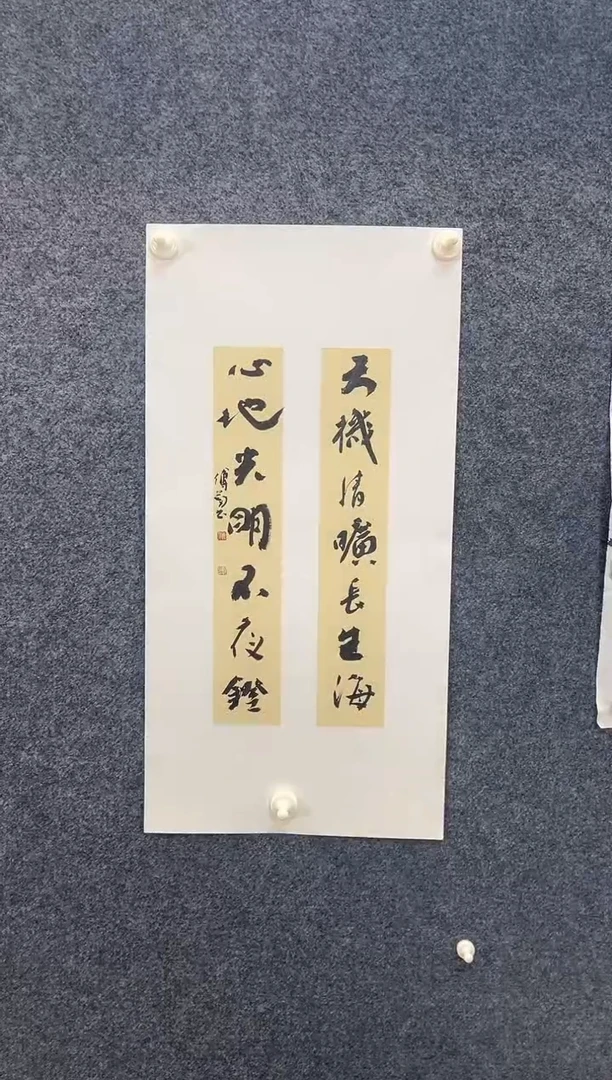 天機清曠長生海
心地光明不夜鐙